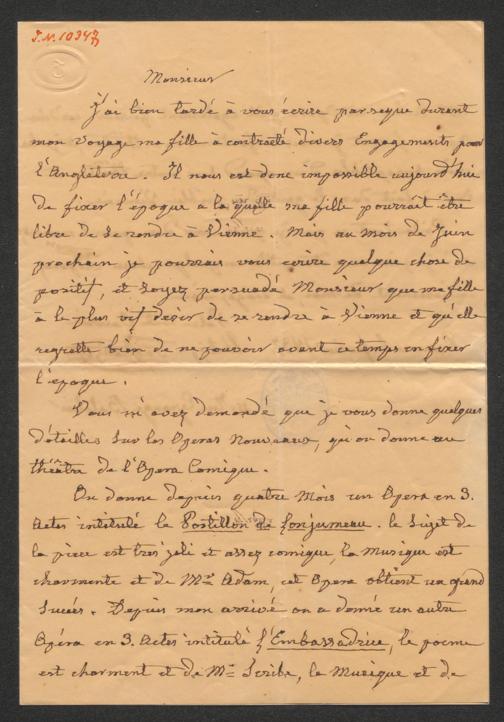 I.N. 10347
Monsieur
J'ai bien tardé à vous écrire parseque durant
mon voyage ma fille à contracté divers Engagements pour
l'Angleterre. Il nous est donc impossible aujourd'hui
de fixer l'époque a la quelle ma fille pourrait être
libre de se rendre à Vienne. Mais au mois de Juin
prochain je pourrais vous ecrire quelque chose de
positif, et soyez persuadé Monsieur que ma fille
à le plus vif desir de se rendre à Vienne et qu'elle
regrette bien de ne pouvoir avant ce temps en fixer
l'epoque.
Vous m'avez demandé que je vous donne quelques
détailles sur les Operas Nouveaux, qu'on donne au
théâtre de l'Opera Comique.
On donne depuis quatre mois un Opera en 3.
Actes intitulé le Postillon de Lonjumeau. le Sujet de
la piece est tres joli et assez comique, la musique est
charmente et de Mr. Adam, cet Opera obtient un grand
Succés. Depuis mon arrivé on a donné un autre
Opéra en 3. Actes intitulé l'Embassadrice, le poeme
est charment et de Mr. Scribe, la Musique et de